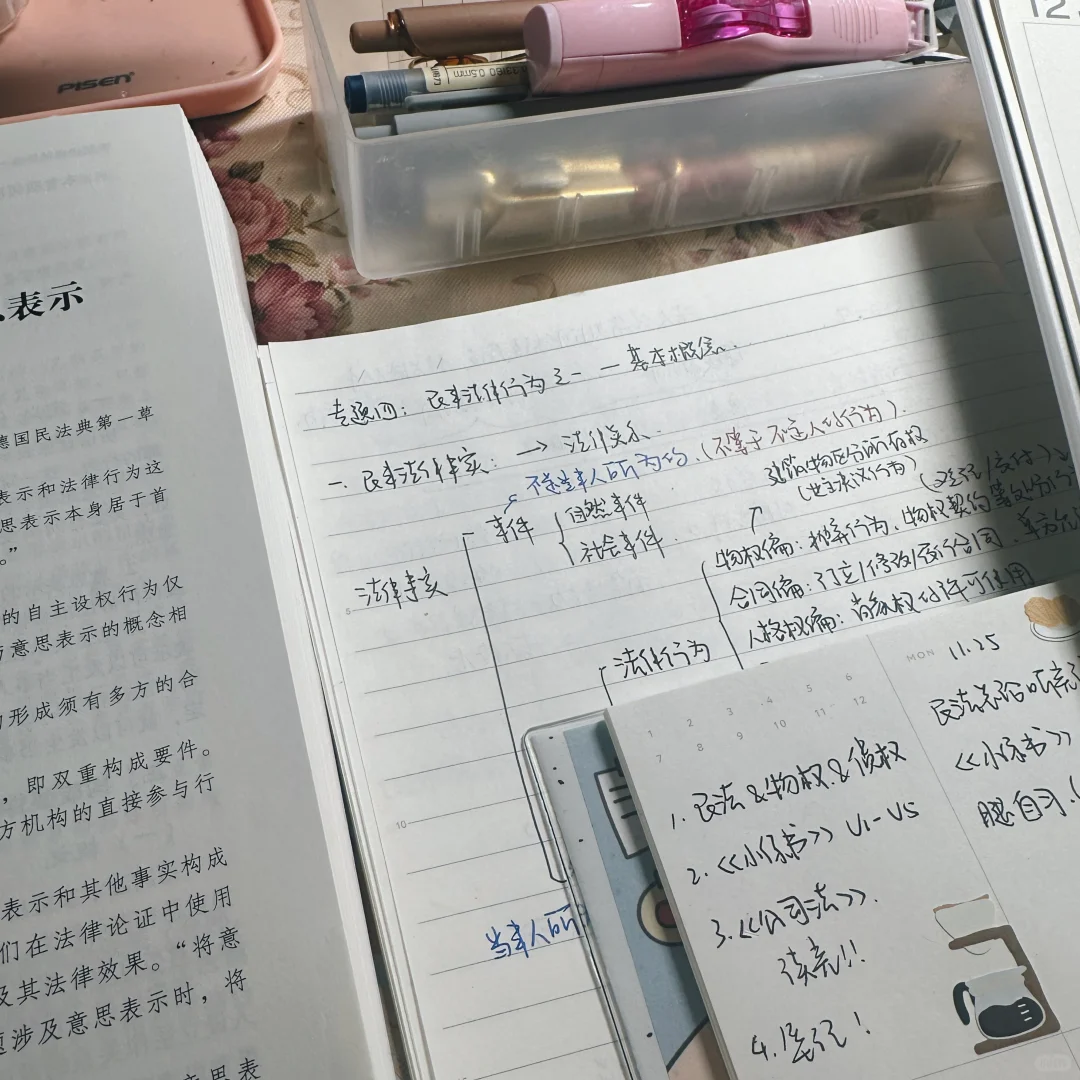 PISEN
0.5mm
12
表示
德国民法典第一草
表示和法律行为这
思表示本身居于首
。”
的自主设权行为仅
与意思表示的概念相
形成须有多方的合
，即双重构成要件。
方机构的直接参与行
表示和其他事实构成
们在法律论证中使用
及其法律效果。“将意
题涉及意思表示时，将
意思表
专题四：民事法律行为之一 — 基本概念
一、民事法律事实：→ 法律关系
不是当事人所为的.（不等于不是人的行为）.
事件
自然事件
社会事件
法律事实
建筑物区分所有权
（业主决议行为）
物权编：抛弃行为、物权契约等处分行
合同编：订立/修改/废合同、单方允
人格权编：肖像权的许可使用
法律行为
当事人所
1 2 3 4 5 6
7 8 9 10 11 12
1. 民法&物权&侵权
2.《小绿书》V1-V5
3.《公司法》.
读完!!
4.
MON 11.25
民法总论听完
《小绿书》
腿自习.
5
10